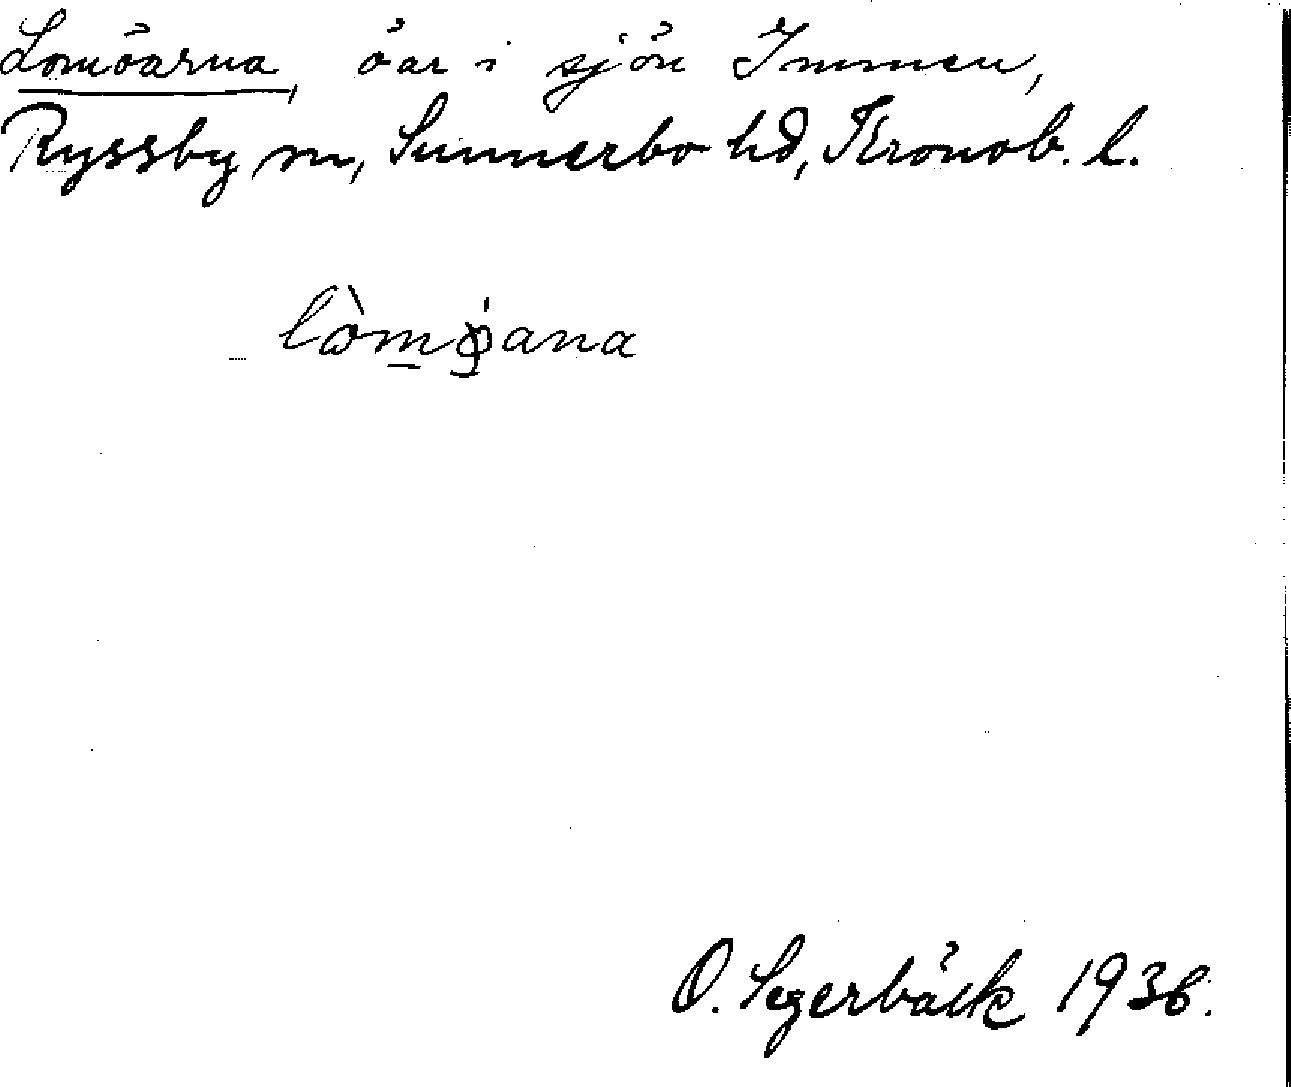 Lomöarna, öar i sjön Immen,
Ryssby sn, Sunnerbo hd, Kronob. l.
lòmø̀ana
O. Segerbäck 1936.